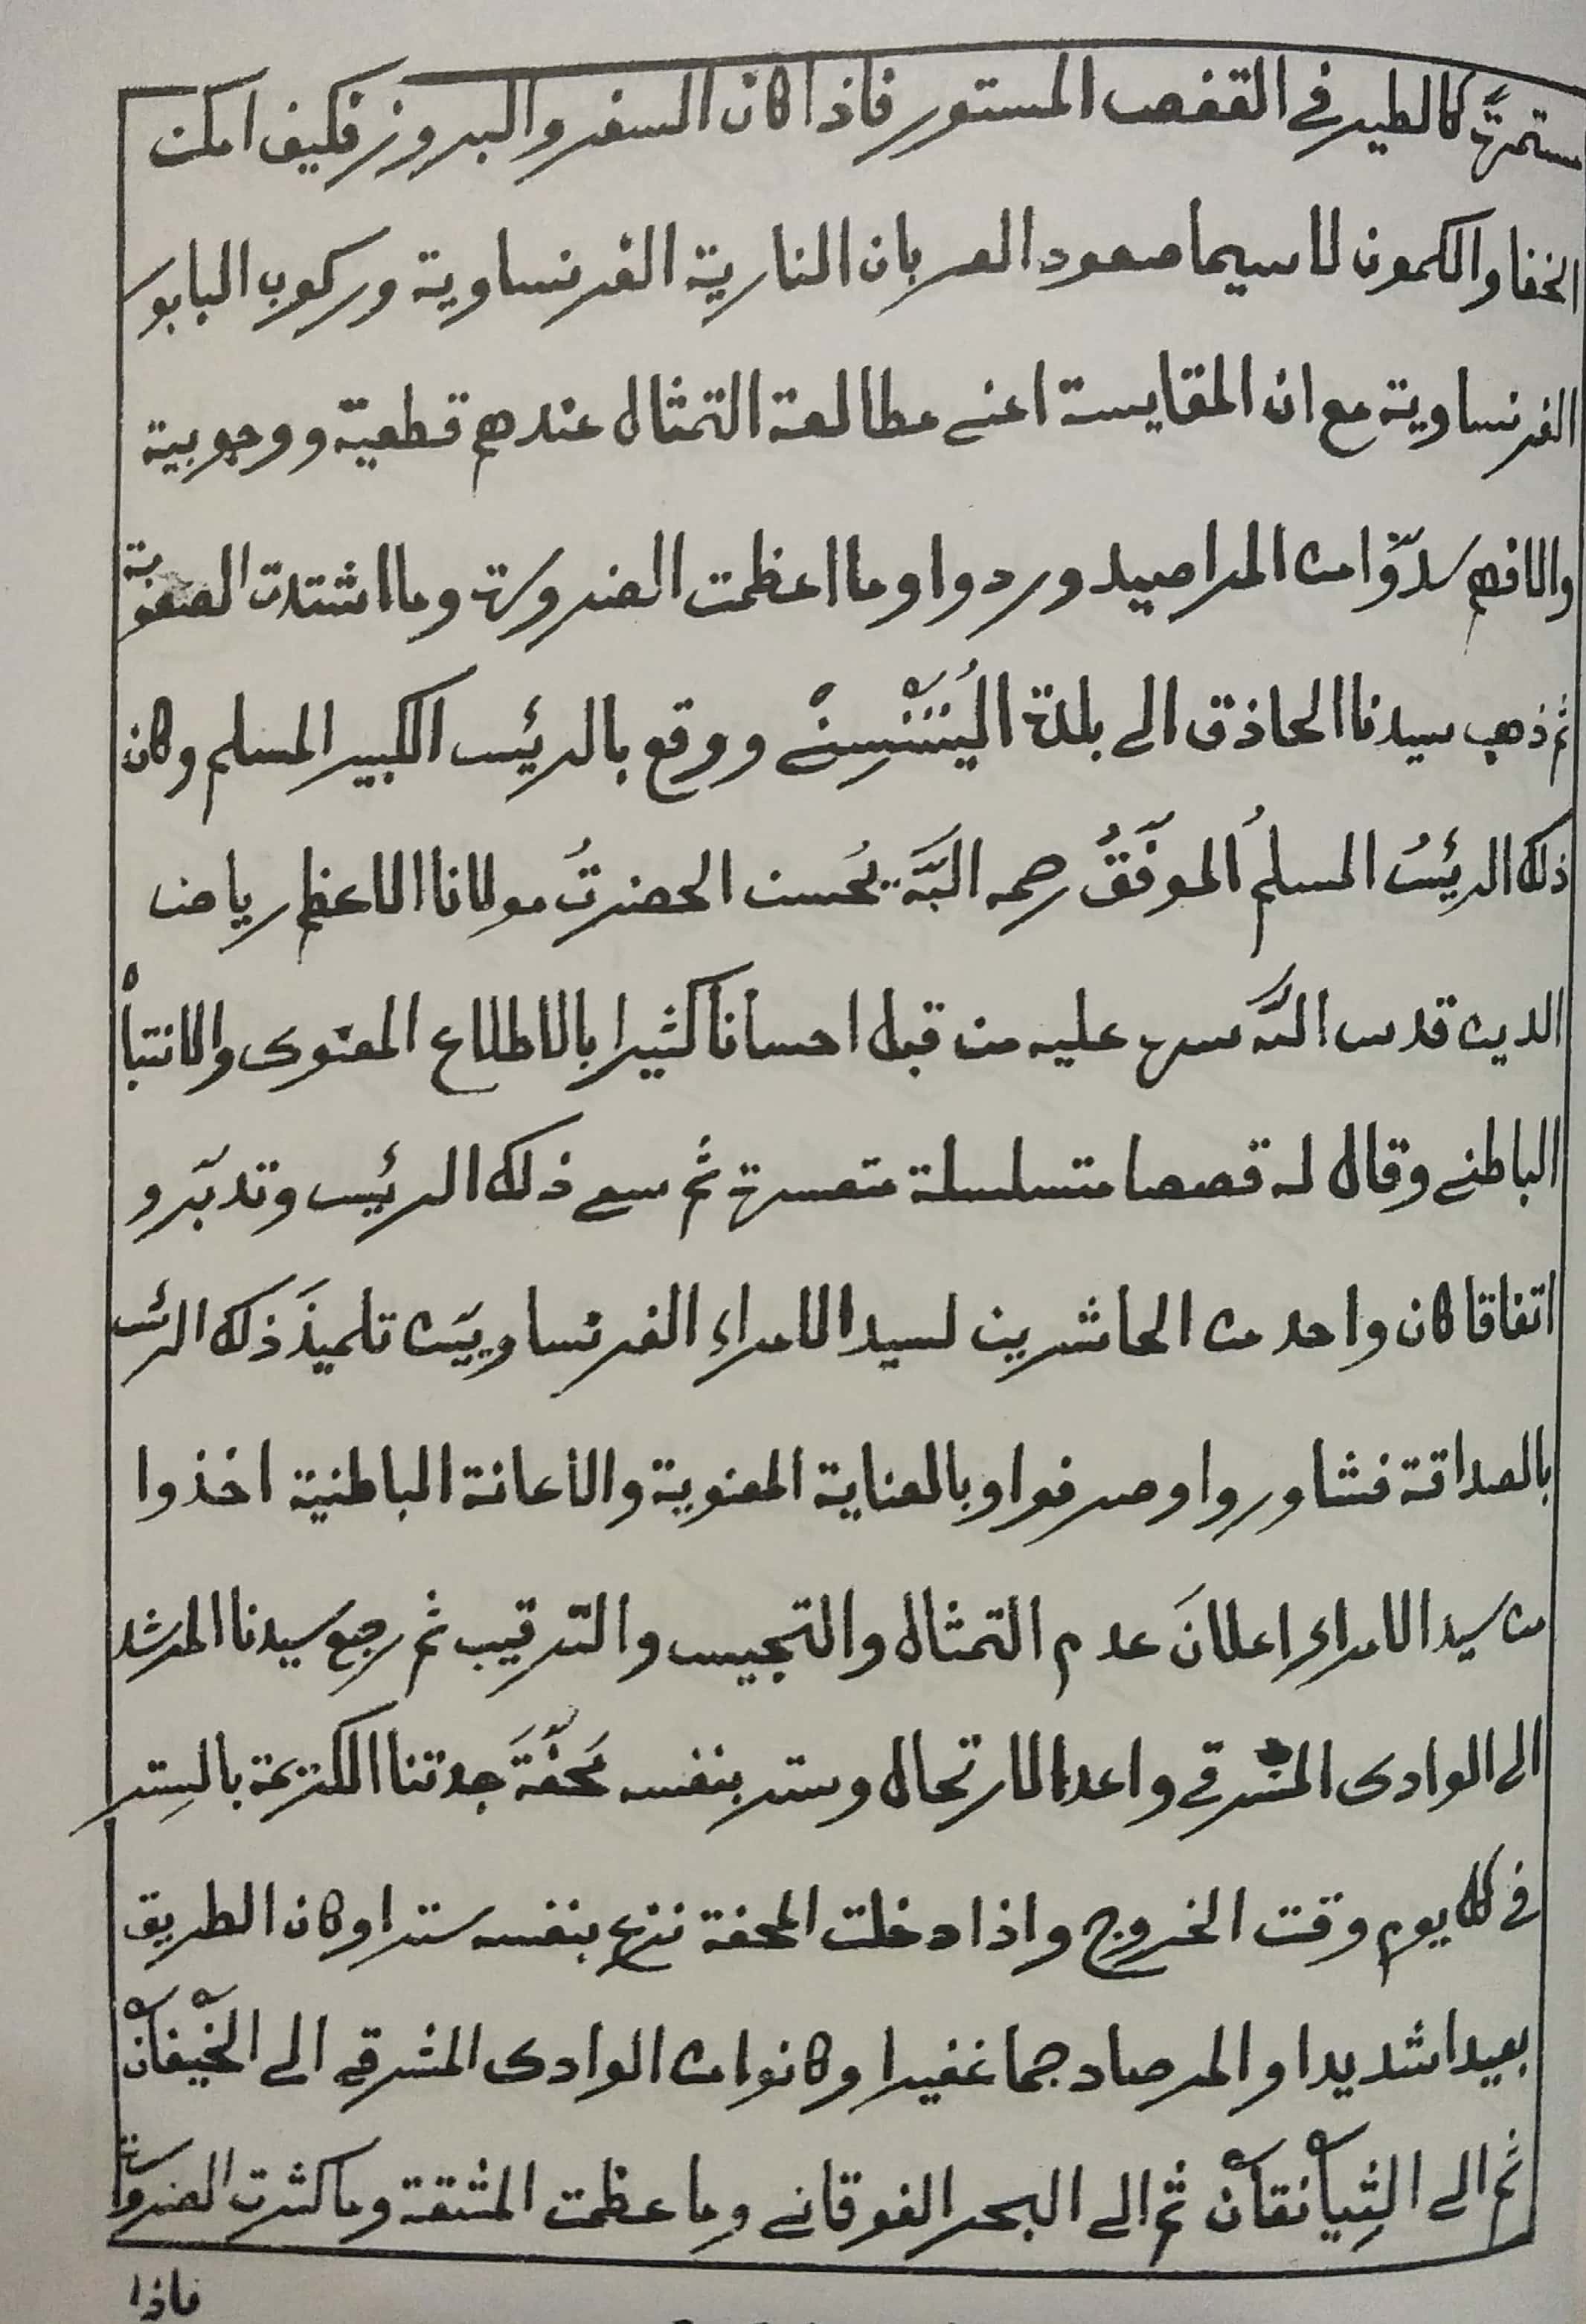 مستمرة كالطير في القفص المستور فاذا كان السفر والبروز فكيف امكن
الخفا والكمون لا سيما صعود العربان النارية الفرنساوية وركوب البابور
الفرنساوية مع ان المقايسة اعني مطالعة التمثال عندهم قطعية ووجوبية
والا فهم سدّوا من المراصيد وردوا وما اعظمت الضرورة وما اشتدت الصعوبة
ثم ذهب سيدنا الحاذق الى بلدة اليُنَنْسِنْ ووقع بالرئيس الكبير المسلم وكان
ذلك الرئيسُ المسلمُ الموفَّقُ رحمه اللّه يُحسن الحضرتُ مولانا الاعظم رياض
الدين قدس اللّه سره عليه من قبل احسانا كثيرا بالاطلاع المعنوى والانتباه
الباطني وقال له قصصا متسلسلة متعسرة ثم سعى ذلك الرئيس وتدبّر و
اتفاقا كان واحد من الحاشرين لسيد الامراء الفرنساويين تلميذَ ذلك الرئيس
بالصداقة فشاوروا وصرفوا وبالعناية المعنوية والأعانة الباطنية اخذوا
من سيد الامراء اعلانَ عدم التمثال والتجيس والترقيب ثم رجع سيدنا المرشد
الى الوادى المشرقي واعد الارتحال وستر بنفسه مَحفّةَ جدتنا الكريمة بالسِتر
في كل يوم وقت الخروج واذا دخلت المحفة نزع بنفسه سترا وكان الطريق
بعيدا شديدا والمرصاد جما غفيرا وكانوا من الوادى المشرقي الى الخَيْفانْ
ثم الى الثِيانقانْ ثم الى البحر الفوقاني وما عظمت المشقة وما كثرت الضرورة
فاذا